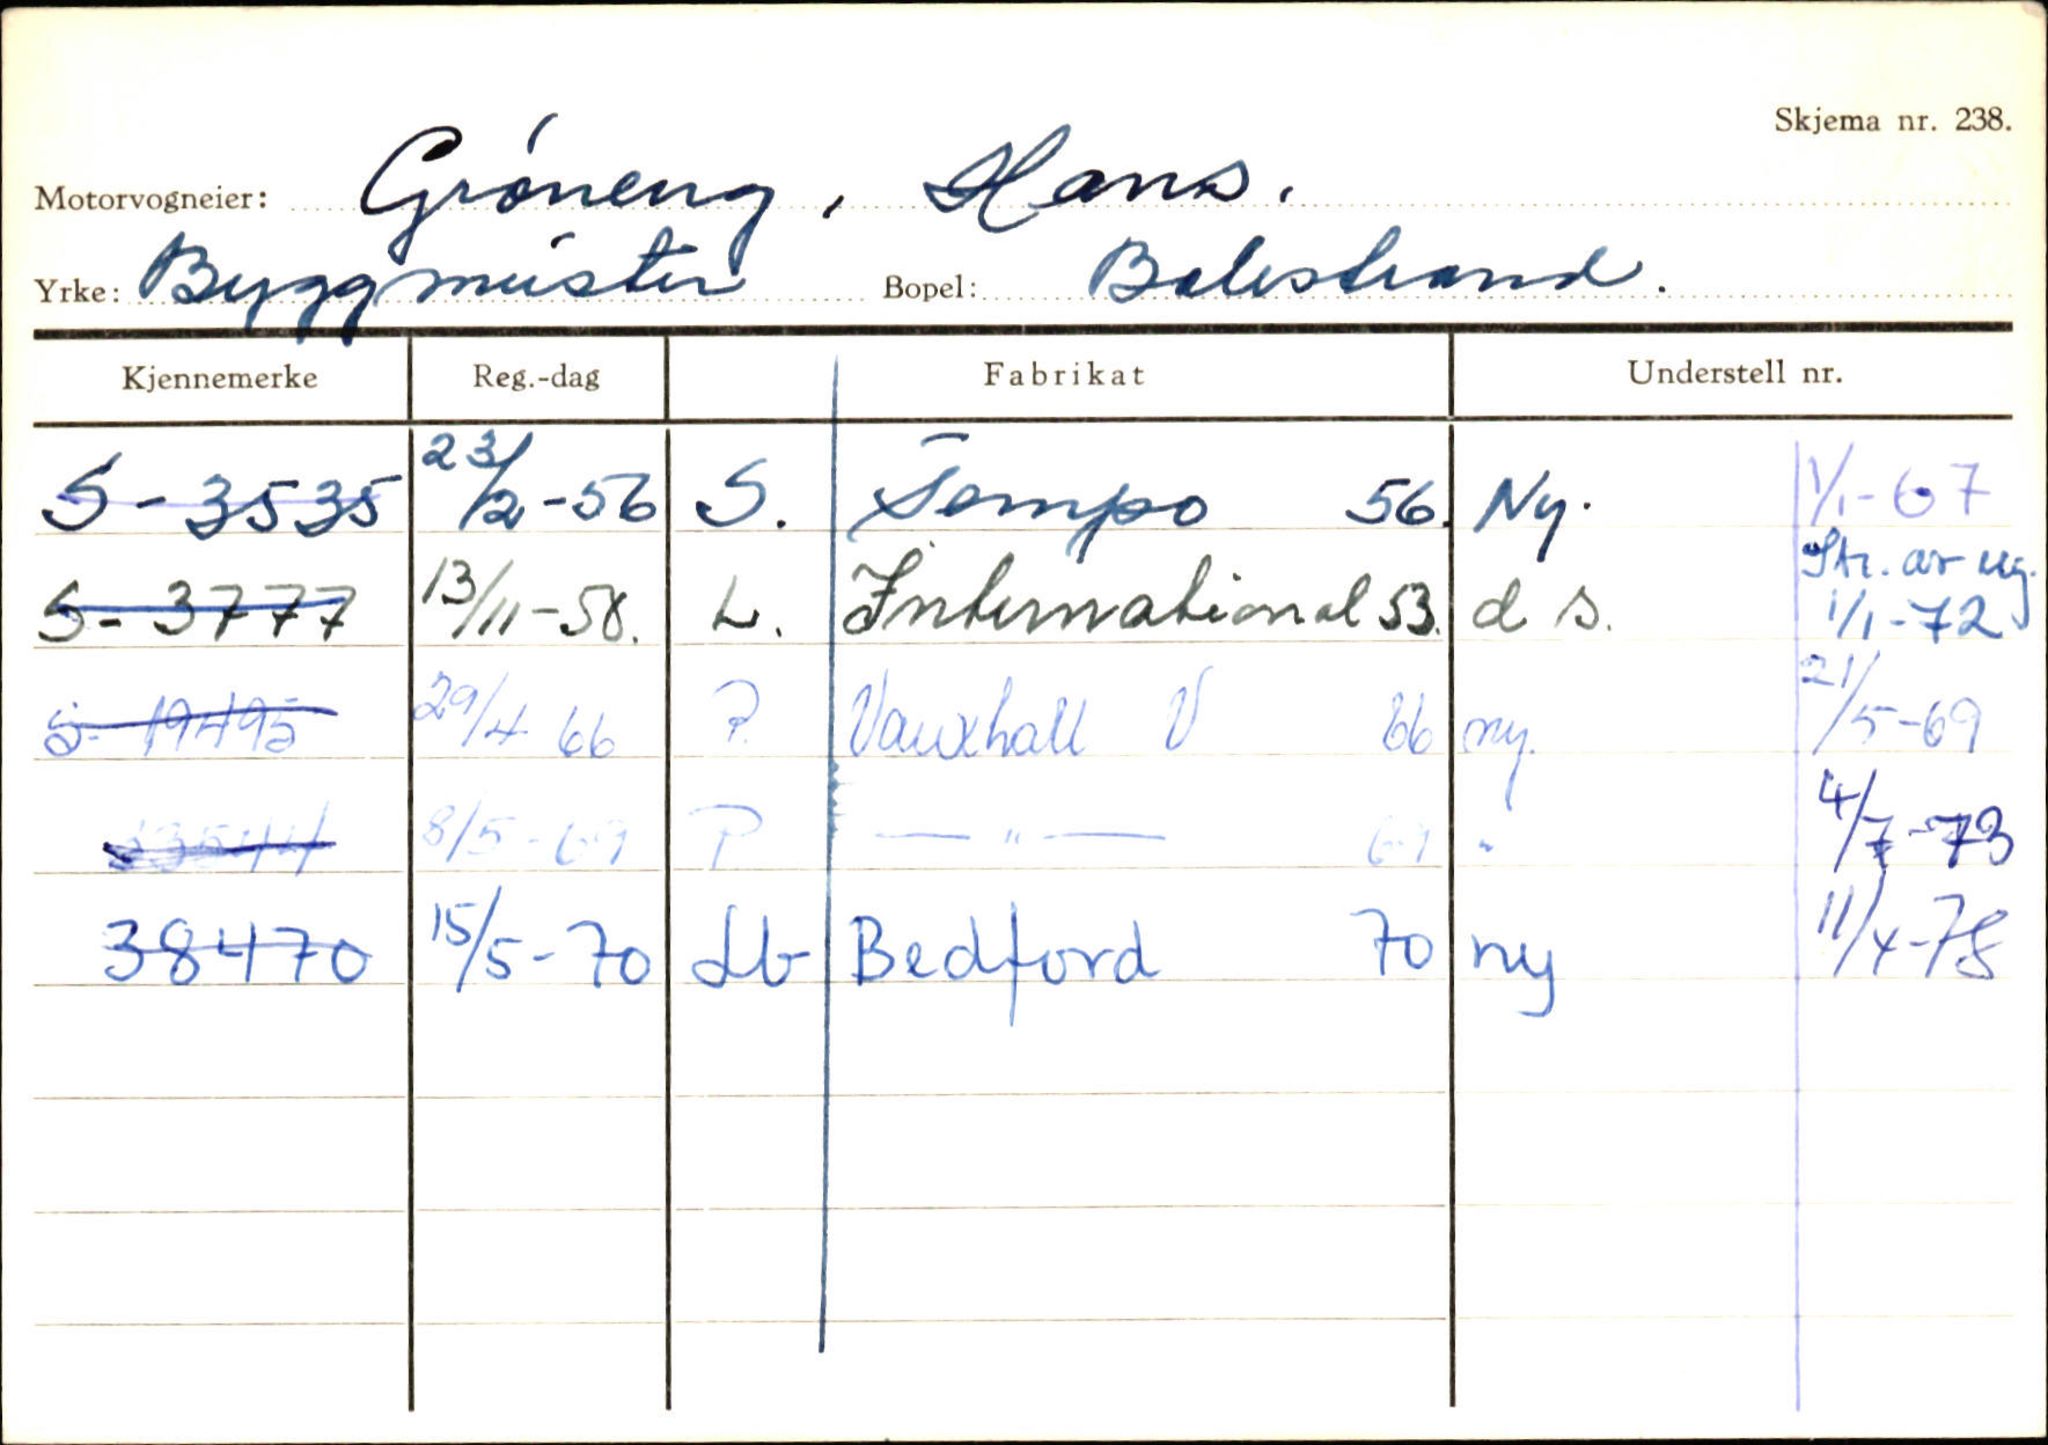 Skjema nr. 238.
Motorvogneier: Gróneng, Hans.
Yrke: Byggmeister Bopel: Balestrand.
Kjennemerke Reg.-dag Fabrikat Understell nr.
S-3535 23/2-56 S. Tempo 56. Ny. 1/1-67
S-3777 13/11-58. L. International 53. d s. Str. av reg. 1/1-72
S-19495 29/4 66 P. Vauxhall V 66 ny. 21/5-69
33544 8/5-69 P — " — 69 " 4/7-73
38470 15/5-70 Lb Bedford 70 ny 11/4-78